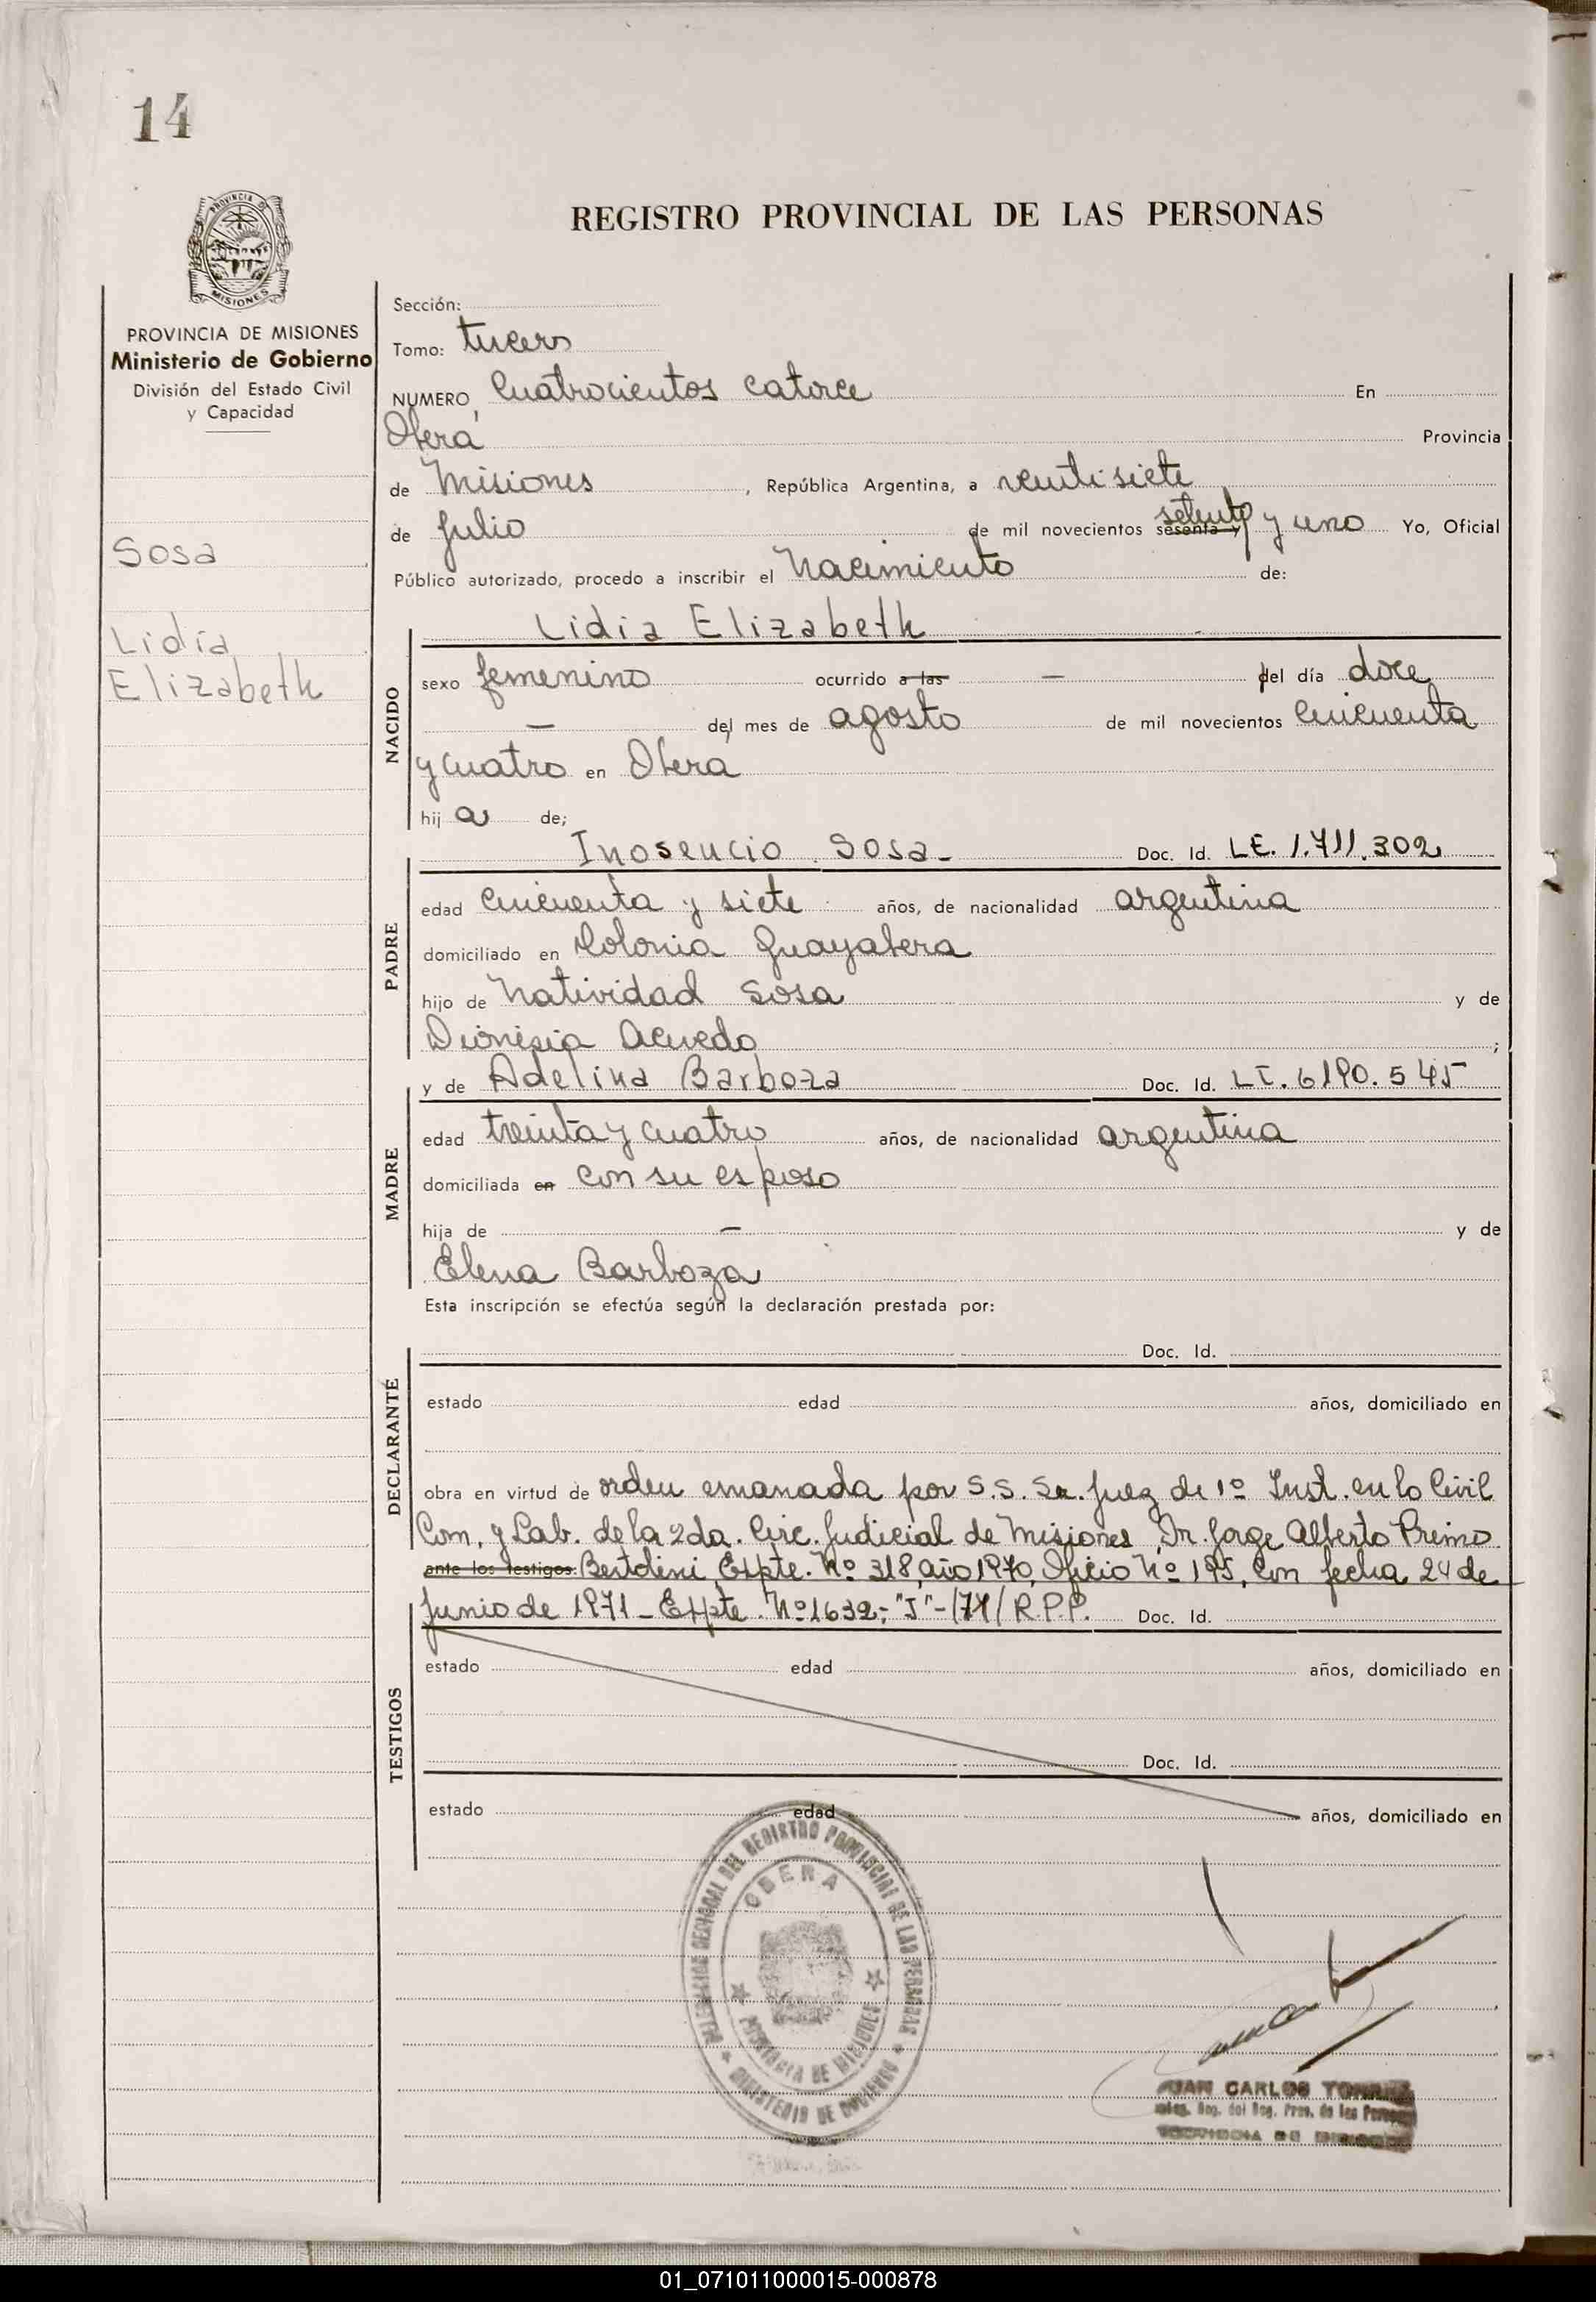 14
PROVINCIA DE MISIONES
REGISTRO PROVINCIAL DE LAS PERSONAS
PROVINCIA DE MISIONES
Ministerio de Gobierno
División del Estado Civil
y Capacidad
Sosa
Lidia
Elizabeth
Sección:
Tomo: tercero
NUMERO Cuatrocientos catorce En
Oberá Provincia
de Misiones , República Argentina, a veintisiete
de Julio de mil novecientos sesenta y setenta y uno Yo, Oficial
Público autorizado, procedo a inscribir el Nacimiento de:
Lidia Elizabeth
NACIDO
sexo femenino ocurrido a las — del día doce
— del mes de agosto de mil novecientos cincuenta
y cuatro en Obera
hij a de;
Inosencio Sosa - Doc. Id. LE. 1.711.302
PADRE
edad cincuenta y siete años, de nacionalidad argentina
domiciliado en Colonia Guayabera
hijo de Natividad Sosa y de
Dionisia Acevedo ;
y de Adelina Barboza Doc. Id. 6190.545
MADRE
edad treinta y cuatro años, de nacionalidad argentina
domiciliada en con su esposo
hija de — y de
Elena Barboza
Esta inscripción se efectúa según la declaración prestada por:
Doc. Id.
DECLARANTE
estado edad años, domiciliado en
obra en virtud de orden emanada por S.S. Sr. Juez de 1º Inst. en lo Civil
Com. y Lab. de la 2da. Circ. Judicial de Misiones Dr. Jorge Alberto Primo
ante los testigos: Bertolini, Expte. Nº 318, año 1970, Oficio Nº 195, con fecha 24 de
Junio de 1971 - Expte. Nº 1632,- "J" - /71/ R.P.P. Doc. Id.
TESTIGOS
estado edad años, domiciliado en
Doc. Id.
estado edad años, domiciliado en
DEL REGISTRO PROVINCIAL DE LAS PERSONAS
OBERA
PROVINCIA DE MISIONES
MINISTERIO DE GOBIERNO
JUAN CARLOS
Reg. del Reg. Prov. de las
PROVINCIA DE MISIONES
01_071011000015-000878